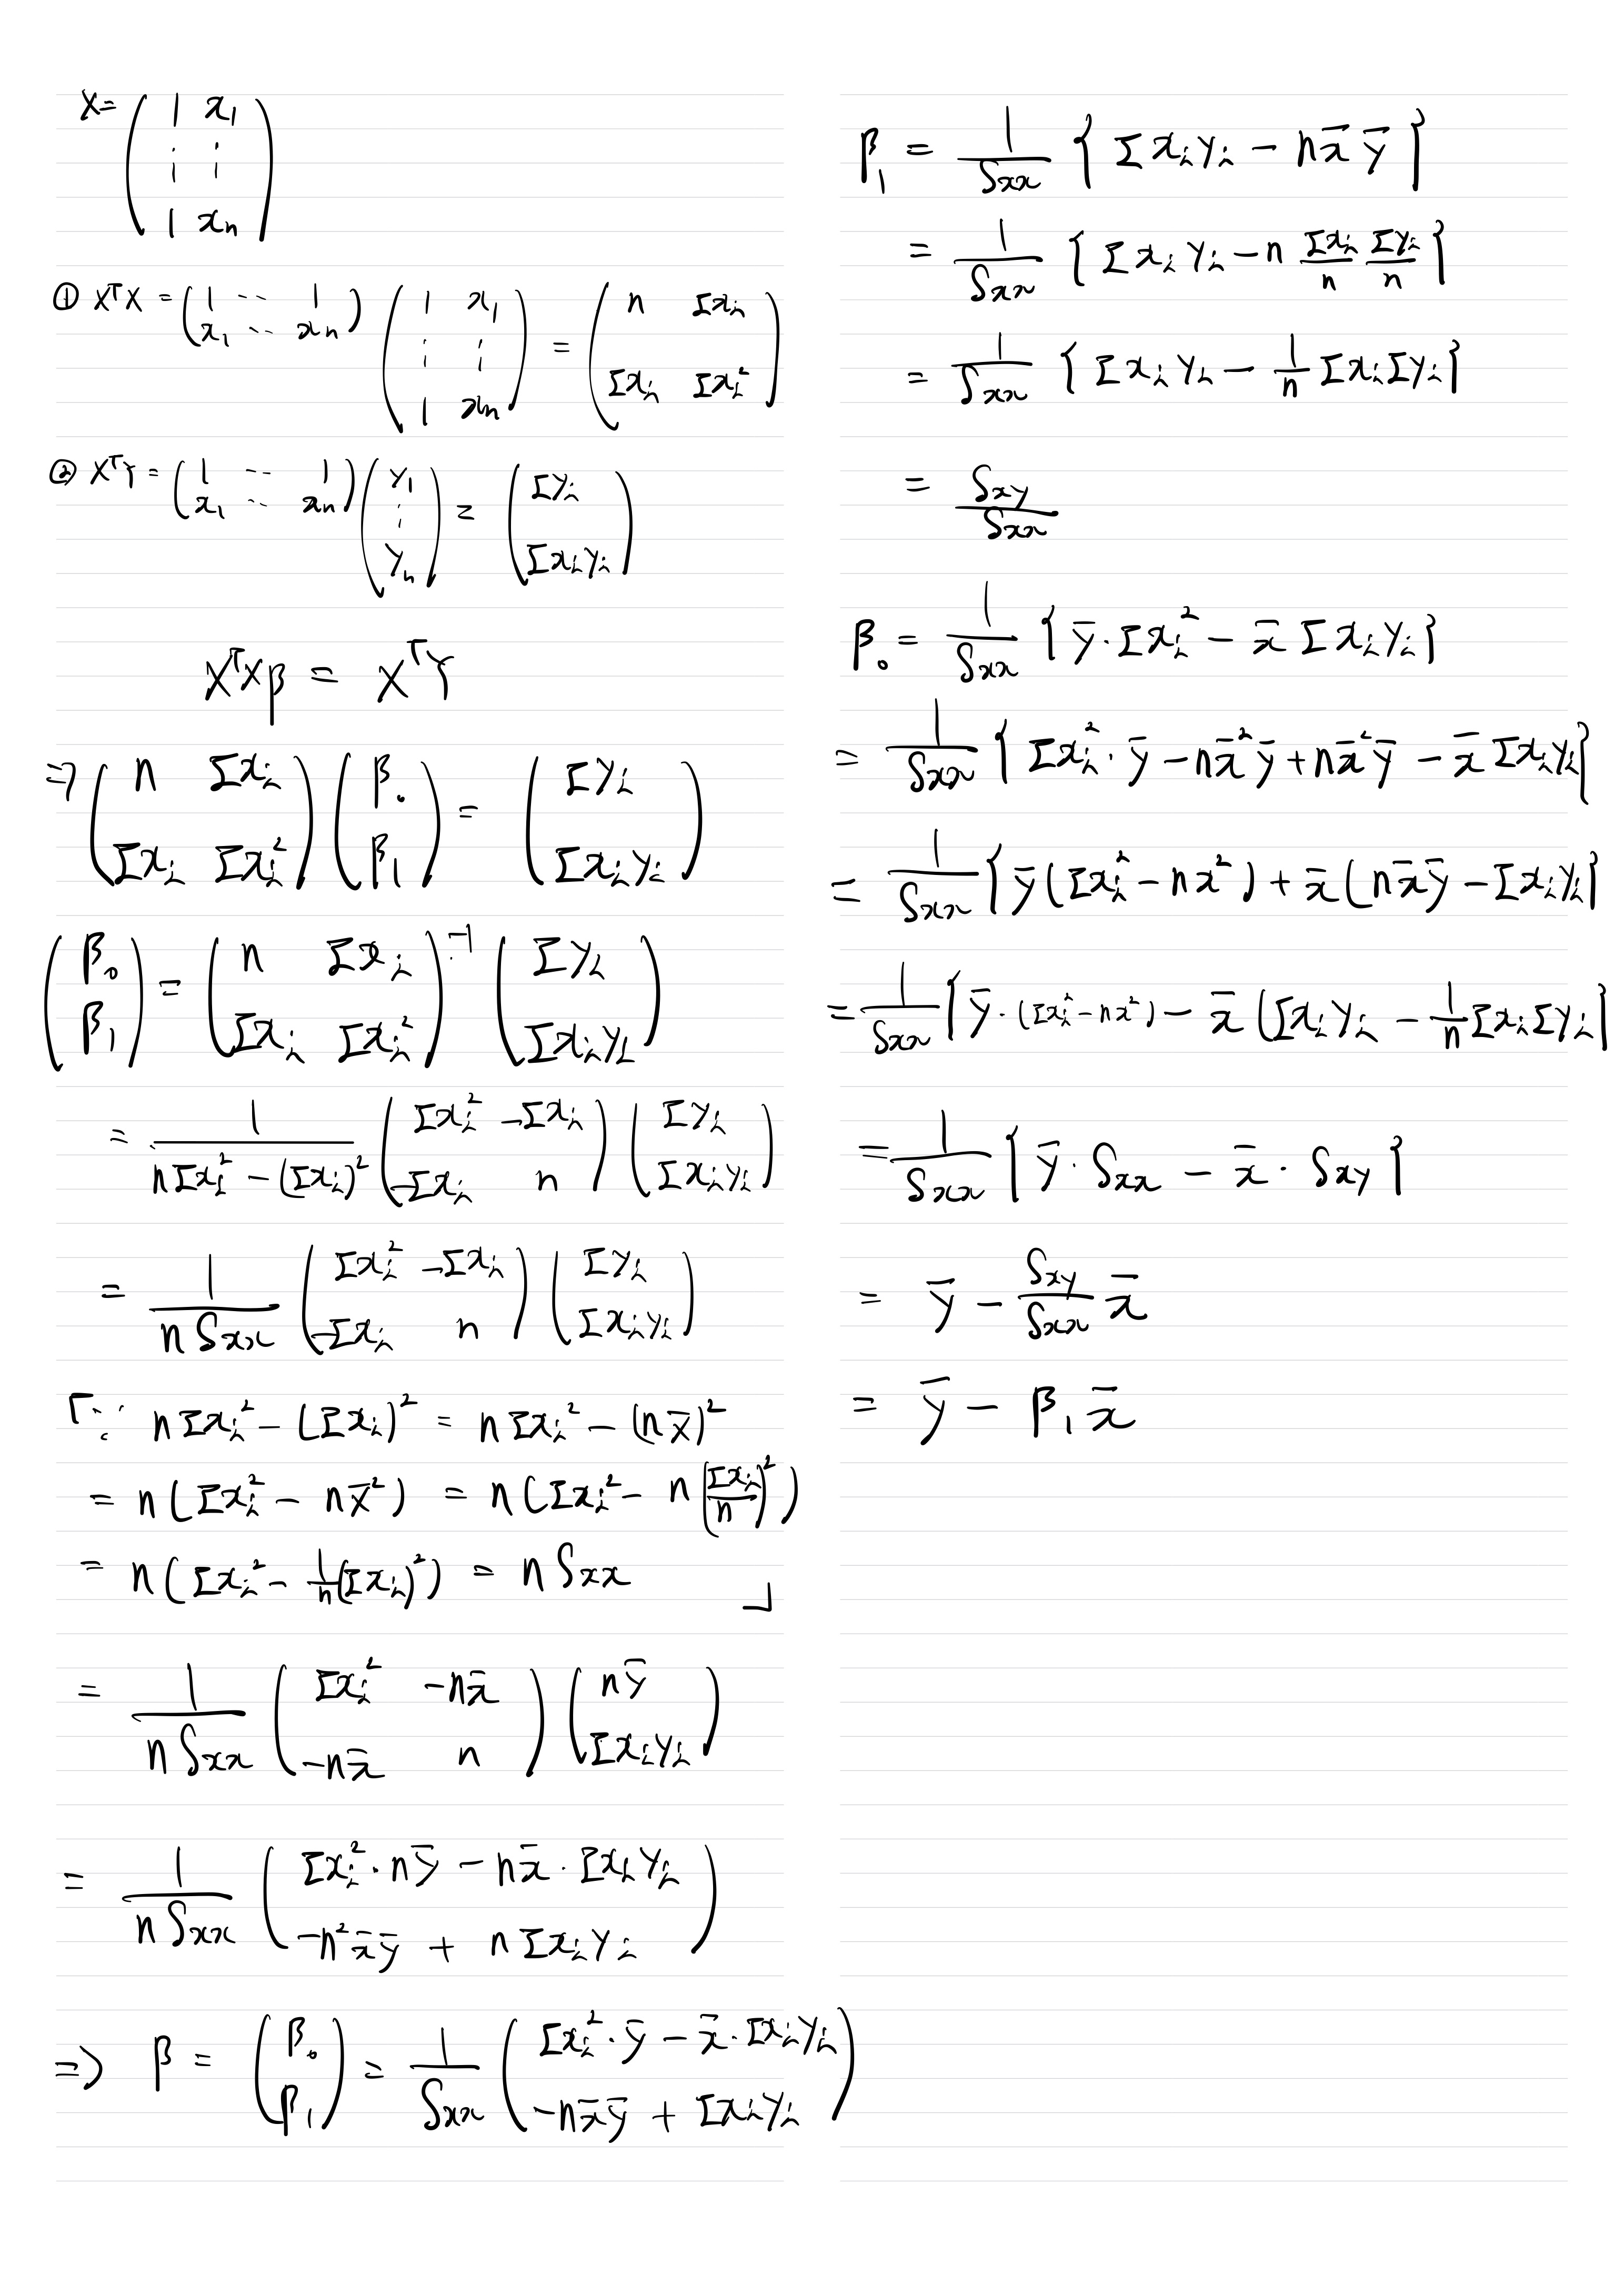 X = \begin{pmatrix} 1 & x_1 \\ \vdots & \vdots \\ 1 & x_n \end{pmatrix}
① X^T X = \begin{pmatrix} 1 & \cdots & 1 \\ x_1 & \cdots & x_n \end{pmatrix} \begin{pmatrix} 1 & x_1 \\ \vdots & \vdots \\ 1 & x_n \end{pmatrix} = \begin{pmatrix} n & Σx_i \\ Σx_i & Σx_i^2 \end{pmatrix}
② X^T Y = \begin{pmatrix} 1 & \cdots & 1 \\ x_1 & \cdots & x_n \end{pmatrix} \begin{pmatrix} y_1 \\ \vdots \\ y_n \end{pmatrix} = \begin{pmatrix} Σy_i \\ Σx_i y_i \end{pmatrix}
X^T X β = X^T Y
⇒ \begin{pmatrix} n & Σx_i \\ Σx_i & Σx_i^2 \end{pmatrix} \begin{pmatrix} β_0 \\ β_1 \end{pmatrix} = \begin{pmatrix} Σy_i \\ Σx_i y_i \end{pmatrix}
\begin{pmatrix} β_0 \\ β_1 \end{pmatrix} = \begin{pmatrix} n & Σx_i \\ Σx_i & Σx_i^2 \end{pmatrix}^{-1} \begin{pmatrix} Σy_i \\ Σx_i y_i \end{pmatrix}
= \frac{1}{nΣx_i^2 - (Σx_i)^2} \begin{pmatrix} Σx_i^2 & -Σx_i \\ -Σx_i & n \end{pmatrix} \begin{pmatrix} Σy_i \\ Σx_i y_i \end{pmatrix}
= \frac{1}{n S_{xx}} \begin{pmatrix} Σx_i^2 & -Σx_i \\ -Σx_i & n \end{pmatrix} \begin{pmatrix} Σy_i \\ Σx_i y_i \end{pmatrix}
「∵ nΣx_i^2 - (Σx_i)^2 = nΣx_i^2 - (n\bar{x})^2
= n(Σx_i^2 - n\bar{x}^2) = n(Σx_i^2 - n(\frac{Σx_i}{n})^2)
= n(Σx_i^2 - \frac{1}{n}(Σx_i)^2) = n S_{xx} 」
= \frac{1}{n S_{xx}} \begin{pmatrix} Σx_i^2 & -n\bar{x} \\ -n\bar{x} & n \end{pmatrix} \begin{pmatrix} n\bar{y} \\ Σx_i y_i \end{pmatrix}
= \frac{1}{n S_{xx}} \begin{pmatrix} Σx_i^2 · n\bar{y} - n\bar{x} · Σx_i y_i \\ -n^2 \bar{x}\bar{y} + nΣx_i y_i \end{pmatrix}
⇒ β = \begin{pmatrix} β_0 \\ β_1 \end{pmatrix} = \frac{1}{S_{xx}} \begin{pmatrix} Σx_i^2 · \bar{y} - \bar{x} · Σx_i y_i \\ -n\bar{x}\bar{y} + Σx_i y_i \end{pmatrix}
β_1 = \frac{1}{S_{xx}} \{ Σx_i y_i - n\bar{x}\bar{y} \}
= \frac{1}{S_{xx}} \{ Σx_i y_i - n \frac{Σx_i}{n} \frac{Σy_i}{n} \}
= \frac{1}{S_{xx}} \{ Σx_i y_i - \frac{1}{n} Σx_i Σy_i \}
= \frac{S_{xy}}{S_{xx}}
β_0 = \frac{1}{S_{xx}} \{ \bar{y} · Σx_i^2 - \bar{x} Σx_i y_i \}
= \frac{1}{S_{xx}} \{ Σx_i^2 · \bar{y} - n\bar{x}^2 \bar{y} + n\bar{x}^2 \bar{y} - \bar{x} Σx_i y_i \}
= \frac{1}{S_{xx}} \{ \bar{y} (Σx_i^2 - nx^2) + \bar{x} (n\bar{x}\bar{y} - Σx_i y_i \}
= \frac{1}{S_{xx}} \{ \bar{y} · (Σx_i^2 - nx^2) - \bar{x} (Σx_i y_i - \frac{1}{n} Σx_i Σy_i \}
= \frac{1}{S_{xx}} \{ \bar{y} · S_{xx} - \bar{x} · S_{xy} \}
= \bar{y} - \frac{S_{xy}}{S_{xx}} \bar{x}
= \bar{y} - β_1 \bar{x}